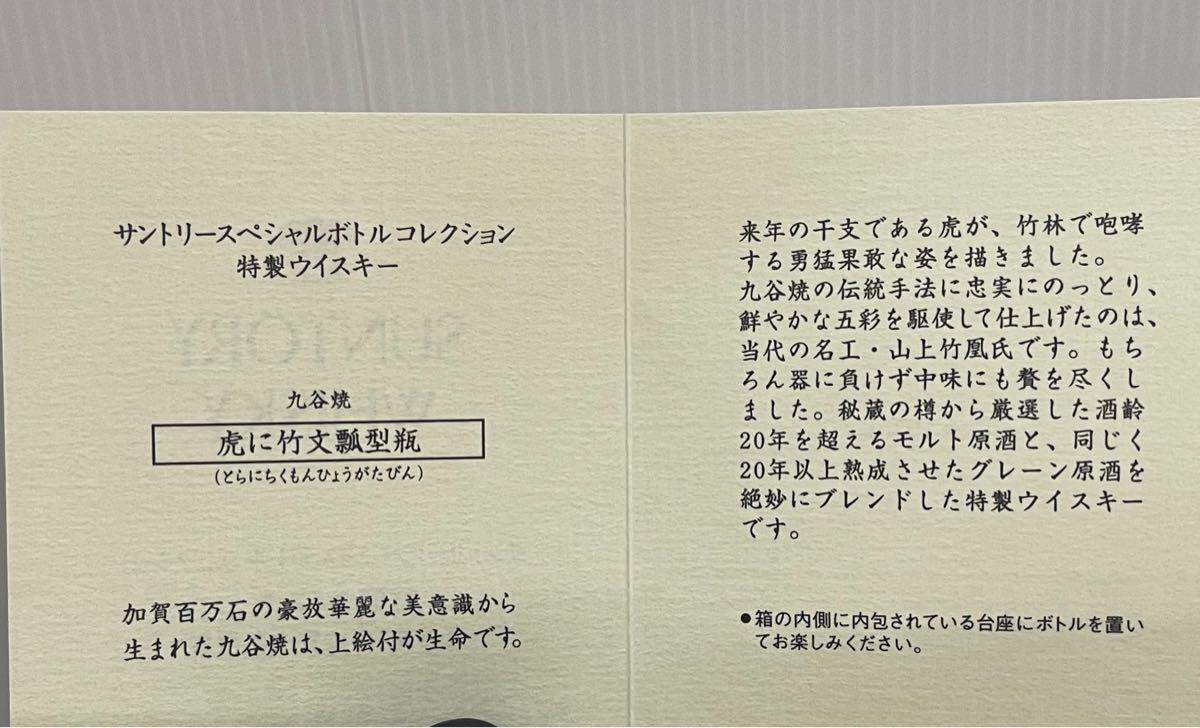 サントリースペシャルボトルコレクション
特製ウイスキー
九谷焼
虎に竹文瓢型瓶
(とらにちくもんひょうがたびん)
加賀百万石の豪放華麗な美意識から
生まれた九谷焼は、上絵付が生命です。
来年の干支である虎が、竹林で咆哮
する勇猛果敢な姿を描きました。
九谷焼の伝統手法に忠実にのっとり、
鮮やかな五彩を駆使して仕上げたのは、
当代の名工・山上竹凰氏です。もち
ろん器に負けず中味にも贅を尽くし
ました。秘蔵の樽から厳選した酒齢
20年を超えるモルト原酒と、同じく
20年以上熟成させたグレーン原酒を
絶妙にブレンドした特製ウイスキー
です。
●箱の内側に内包されている台座にボトルを置い
てお楽しみください。